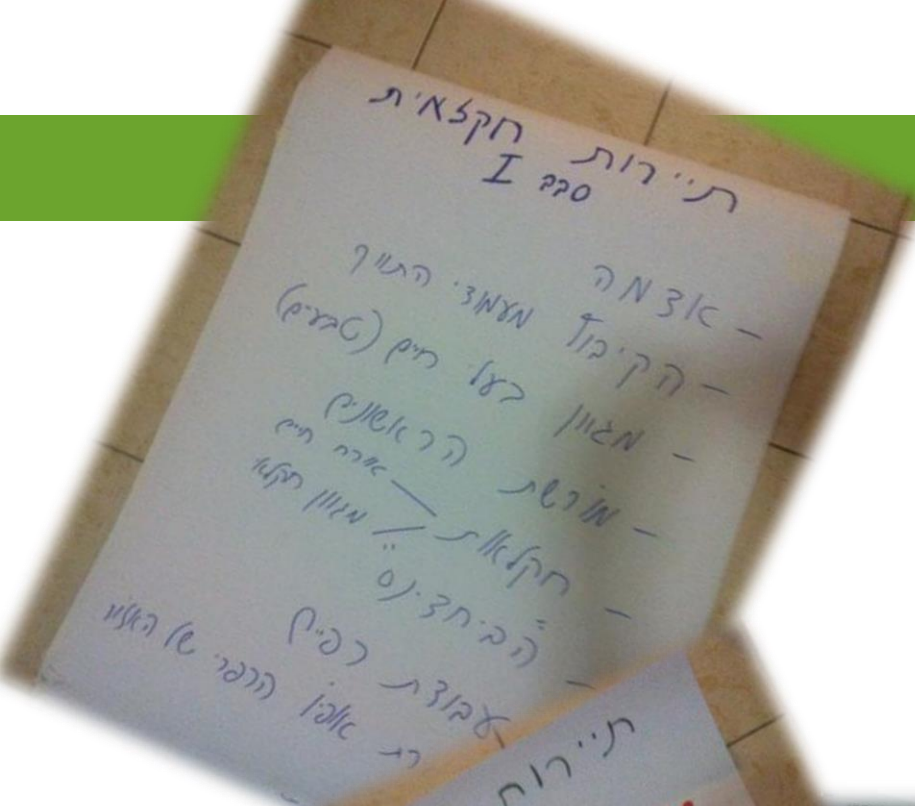 תיירות חקלאית
סבב I
- אדמה
- הקיבוץ מעמודי התווך
- מגוון בעלי חיים (טבעיים)
- מורשת הראשונים
- חקלאות — אורח חיים
/ מגוון חקלאי
- "הביחדינס"
עבודת כפיים
אופי הכפרי של האזור
תיירות